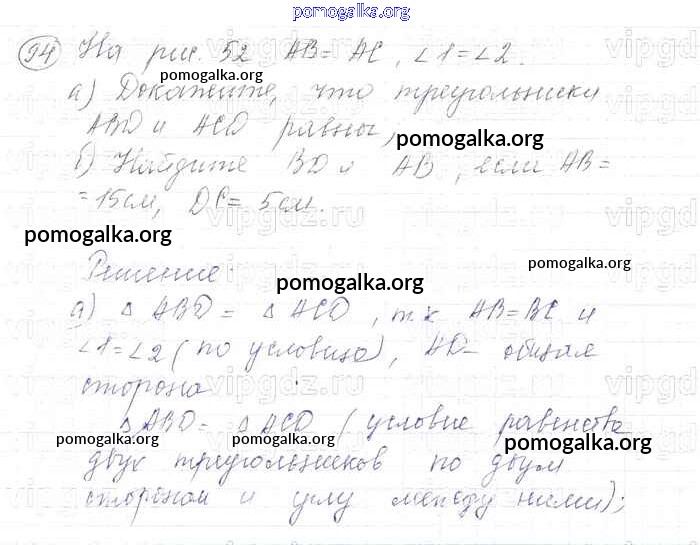 pomogalka.org
94 На рис. 52 AB = AC, ∠1 = ∠2.
pomogalka.org
а) Докажите, что треугольники
ABD и ACD равны;
pomogalka.org
б) Найдите BD и AB, если AB =
= 15см, DC = 5см.
pomogalka.org
pomogalka.org
Решение:
pomogalka.org
а) △ ABD = △ ACD, т.к AB = BC и
∠1 = ∠2 (по условию), AD - общая
сторона
△ABD = △ACD (условие равенства
pomogalka.org pomogalka.org pomogalka.org
двух треугольников по двум
сторонам и углу между ними);